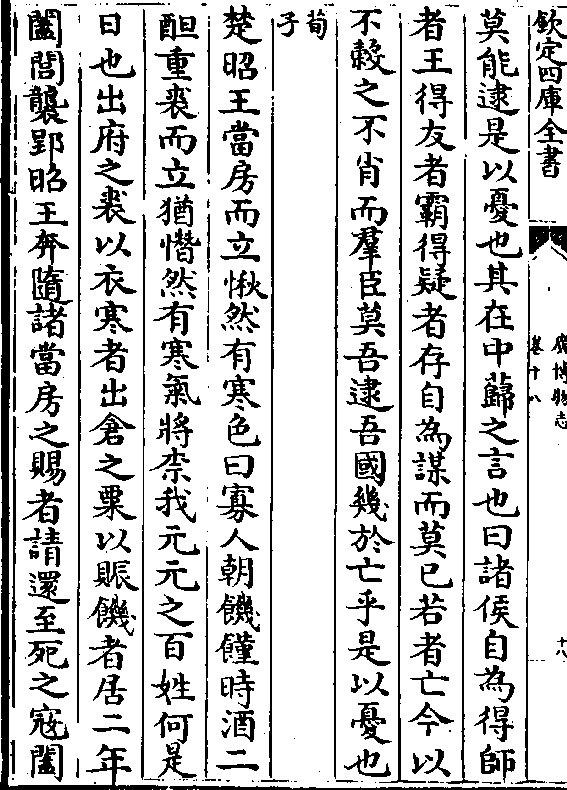 欽定四庫全書
廣博物志
卷十八
十八
莫能逮是以憂也其在中蘬之言也曰諸侯自為得師
者王得友者霸得疑者存自為謀而莫已若者亡今以
不穀之不肖而羣臣莫吾逮吾國幾於亡乎是以憂也
荀子
楚昭王當房而立愀然有寒色曰寡人朝饑饉時酒二
䣱重裘而立猶憯然有寒氣將柰我元元之百姓何是
日也出府之裘以衣寒者出倉之粟以賑饑者居二年
闔閭襲郢昭王奔隨諸當房之賜者請還至死之寇闔